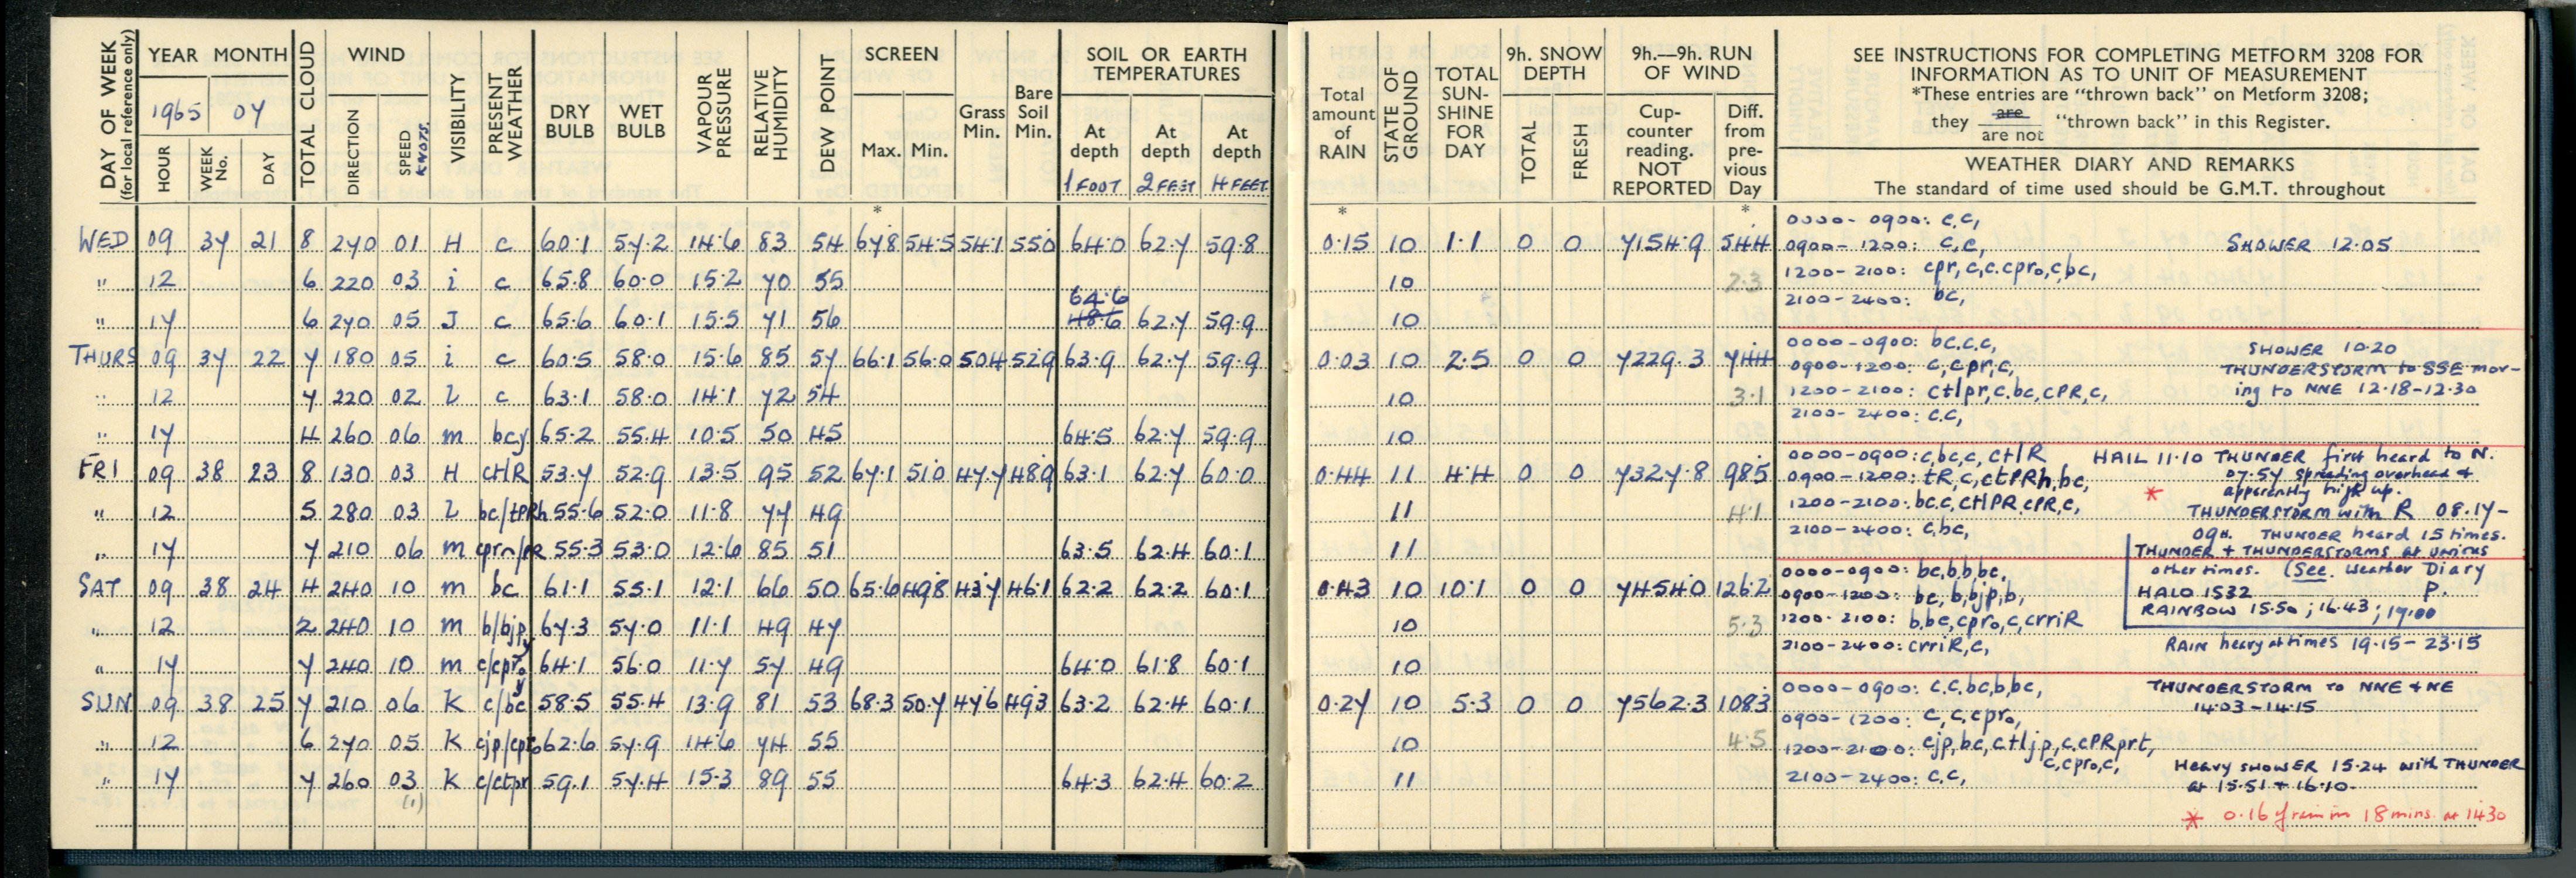 DAY OF WEEK (for local reference only)
YEAR MONTH
1965 07
HOUR WEEK No. DAY
TOTAL CLOUD
WIND
DIRECTION SPEED KNOTS.
VISIBILITY
PRESENT WEATHER
DRY BULB
WET BULB
VAPOUR PRESSURE
RELATIVE HUMIDITY
DEW POINT
SCREEN
Max. Min.
Grass Min.
Bare Soil Min.
SOIL OR EARTH TEMPERATURES
At depth 1 FOOT At depth 2 FEET At depth 4 FEET
WED 09 37 21 8 270 01 4 c 60.1 57.2 14.6 83 54 67.8 54.5 54.1 55.0 64.0 62.7 59.8
" 12 6 220 03 i c 65.8 60.0 15.2 70 55
" 17 6 270 05 J c 65.6 60.1 15.5 71 56 48.6 64.6 62.7 59.9
THURS 09 37 22 7 180 05 i c 60.5 58.0 15.6 85 57 66.1 56.0 50.4 52.9 63.9 62.7 59.9
" 12 7 220 02 L c 63.1 58.0 14.1 72 54
" 17 4 260 06 m bcy 65.2 55.4 10.5 50 45 64.5 62.7 59.9
FRI 09 38 23 8 130 03 4 ctlR 53.7 52.9 13.5 95 52 67.1 51.0 47.7 48.9 63.1 62.7 60.0
" 12 5 280 03 L bc/tPRh 55.6 52.0 11.8 77 49
" 17 7 210 06 m 55.3 53.0 12.6 85 51 63.5 62.4 60.1
SAT 09 38 24 4 240 10 m bc 61.1 55.1 12.1 66 50 65.6 49.8 43.7 46.1 62.2 62.2 60.1
" 12 2 240 10 m b/bjp 67.3 57.0 11.1 49 47
" 17 7 240 10 m c/cpro 64.1 56.0 11.7 57 49 64.0 61.8 60.1
SUN 09 38 25 7 210 06 K c/bc 58.5 55.4 13.9 81 53 68.3 50.7 47.6 49.3 63.2 62.4 60.1
" 12 6 270 05 K cjp/cpro 62.6 57.9 14.6 74 55
" 17 7 260 03 K c/ctpr 59.1 57.4 15.3 89 55 64.3 62.4 60.2
(1)
Total amount of RAIN
STATE OF GROUND
TOTAL SUN-SHINE FOR DAY
9h. SNOW DEPTH
TOTAL FRESH
9h.—9h. RUN OF WIND
Cup-counter reading. NOT REPORTED
Diff. from pre-vious Day
SEE INSTRUCTIONS FOR COMPLETING METFORM 3208 FOR
INFORMATION AS TO UNIT OF MEASUREMENT
*These entries are "thrown back" on Metform 3208;
they are / are not "thrown back" in this Register.
WEATHER DIARY AND REMARKS
The standard of time used should be G.M.T. throughout
0.15 10 1.1 0 0 7154.9 54.4
10 2.3
10
0000-0900: c.c,
0900-1200: c,c, SHOWER 12.05
1200-2100: cpr, c,c.cpro,c,bc,
2100-2400: bc,
0.03 10 2.5 0 0 7229.3 74.4
10 3.1
10
0000-0900: bc.c.c, SHOWER 10.20
0900-1200: c,cpr,c, THUNDERSTORM to SSE mov-
1200-2100: ctlpr,c.bc,cPR,c, ing to NNE 12.18-12.30
2100-2400: c.c,
0.44 11 4.4 0 0 7327.8 98.5
11 4.1
11
0000-0900: c,bc,c,ctlR HAIL 11.10 THUNDER first heard to N.
0900-1200: tR,c,ctPRh,bc, 07.57 spreading overhead &
* apparently high up.
1200-2100: bc.c,ctlPR,cPR,c, THUNDERSTORM with R 08.17-
2100-2400: c,bc, 09H. THUNDER heard 15 times.
THUNDER + THUNDERSTORMS at various
other times. (See. Weather Diary P.
HALO 1532
RAINBOW 15.50; 16.43; 17.00
0.43 10 10.1 0 0 7454.0 126.2
10 5.3
10
0000-0900: bc,b.b,bc,
0900-1200: bc, b,bjp,b,
1200-2100: b.bc,cpro,c,crriR
2100-2400: crriR,c, RAIN heavy at times 19.15-23.15
0.27 10 5.3 0 0 7562.3 108.3
10 4.5
11
0000-0900: c.c.bc,b,bc, THUNDERSTORM to NNE & NE
14.03-14.15
0900-1200: c,c,cpro,
1200-2100: cjp,bc,ctljp,c.cPRprt,
c,cpro,c, Heavy SHOWER 15.24 with THUNDER
2100-2400: c.c, at 15.51 + 16.10.
* 0.16 of rain in 18 mins. at 1430